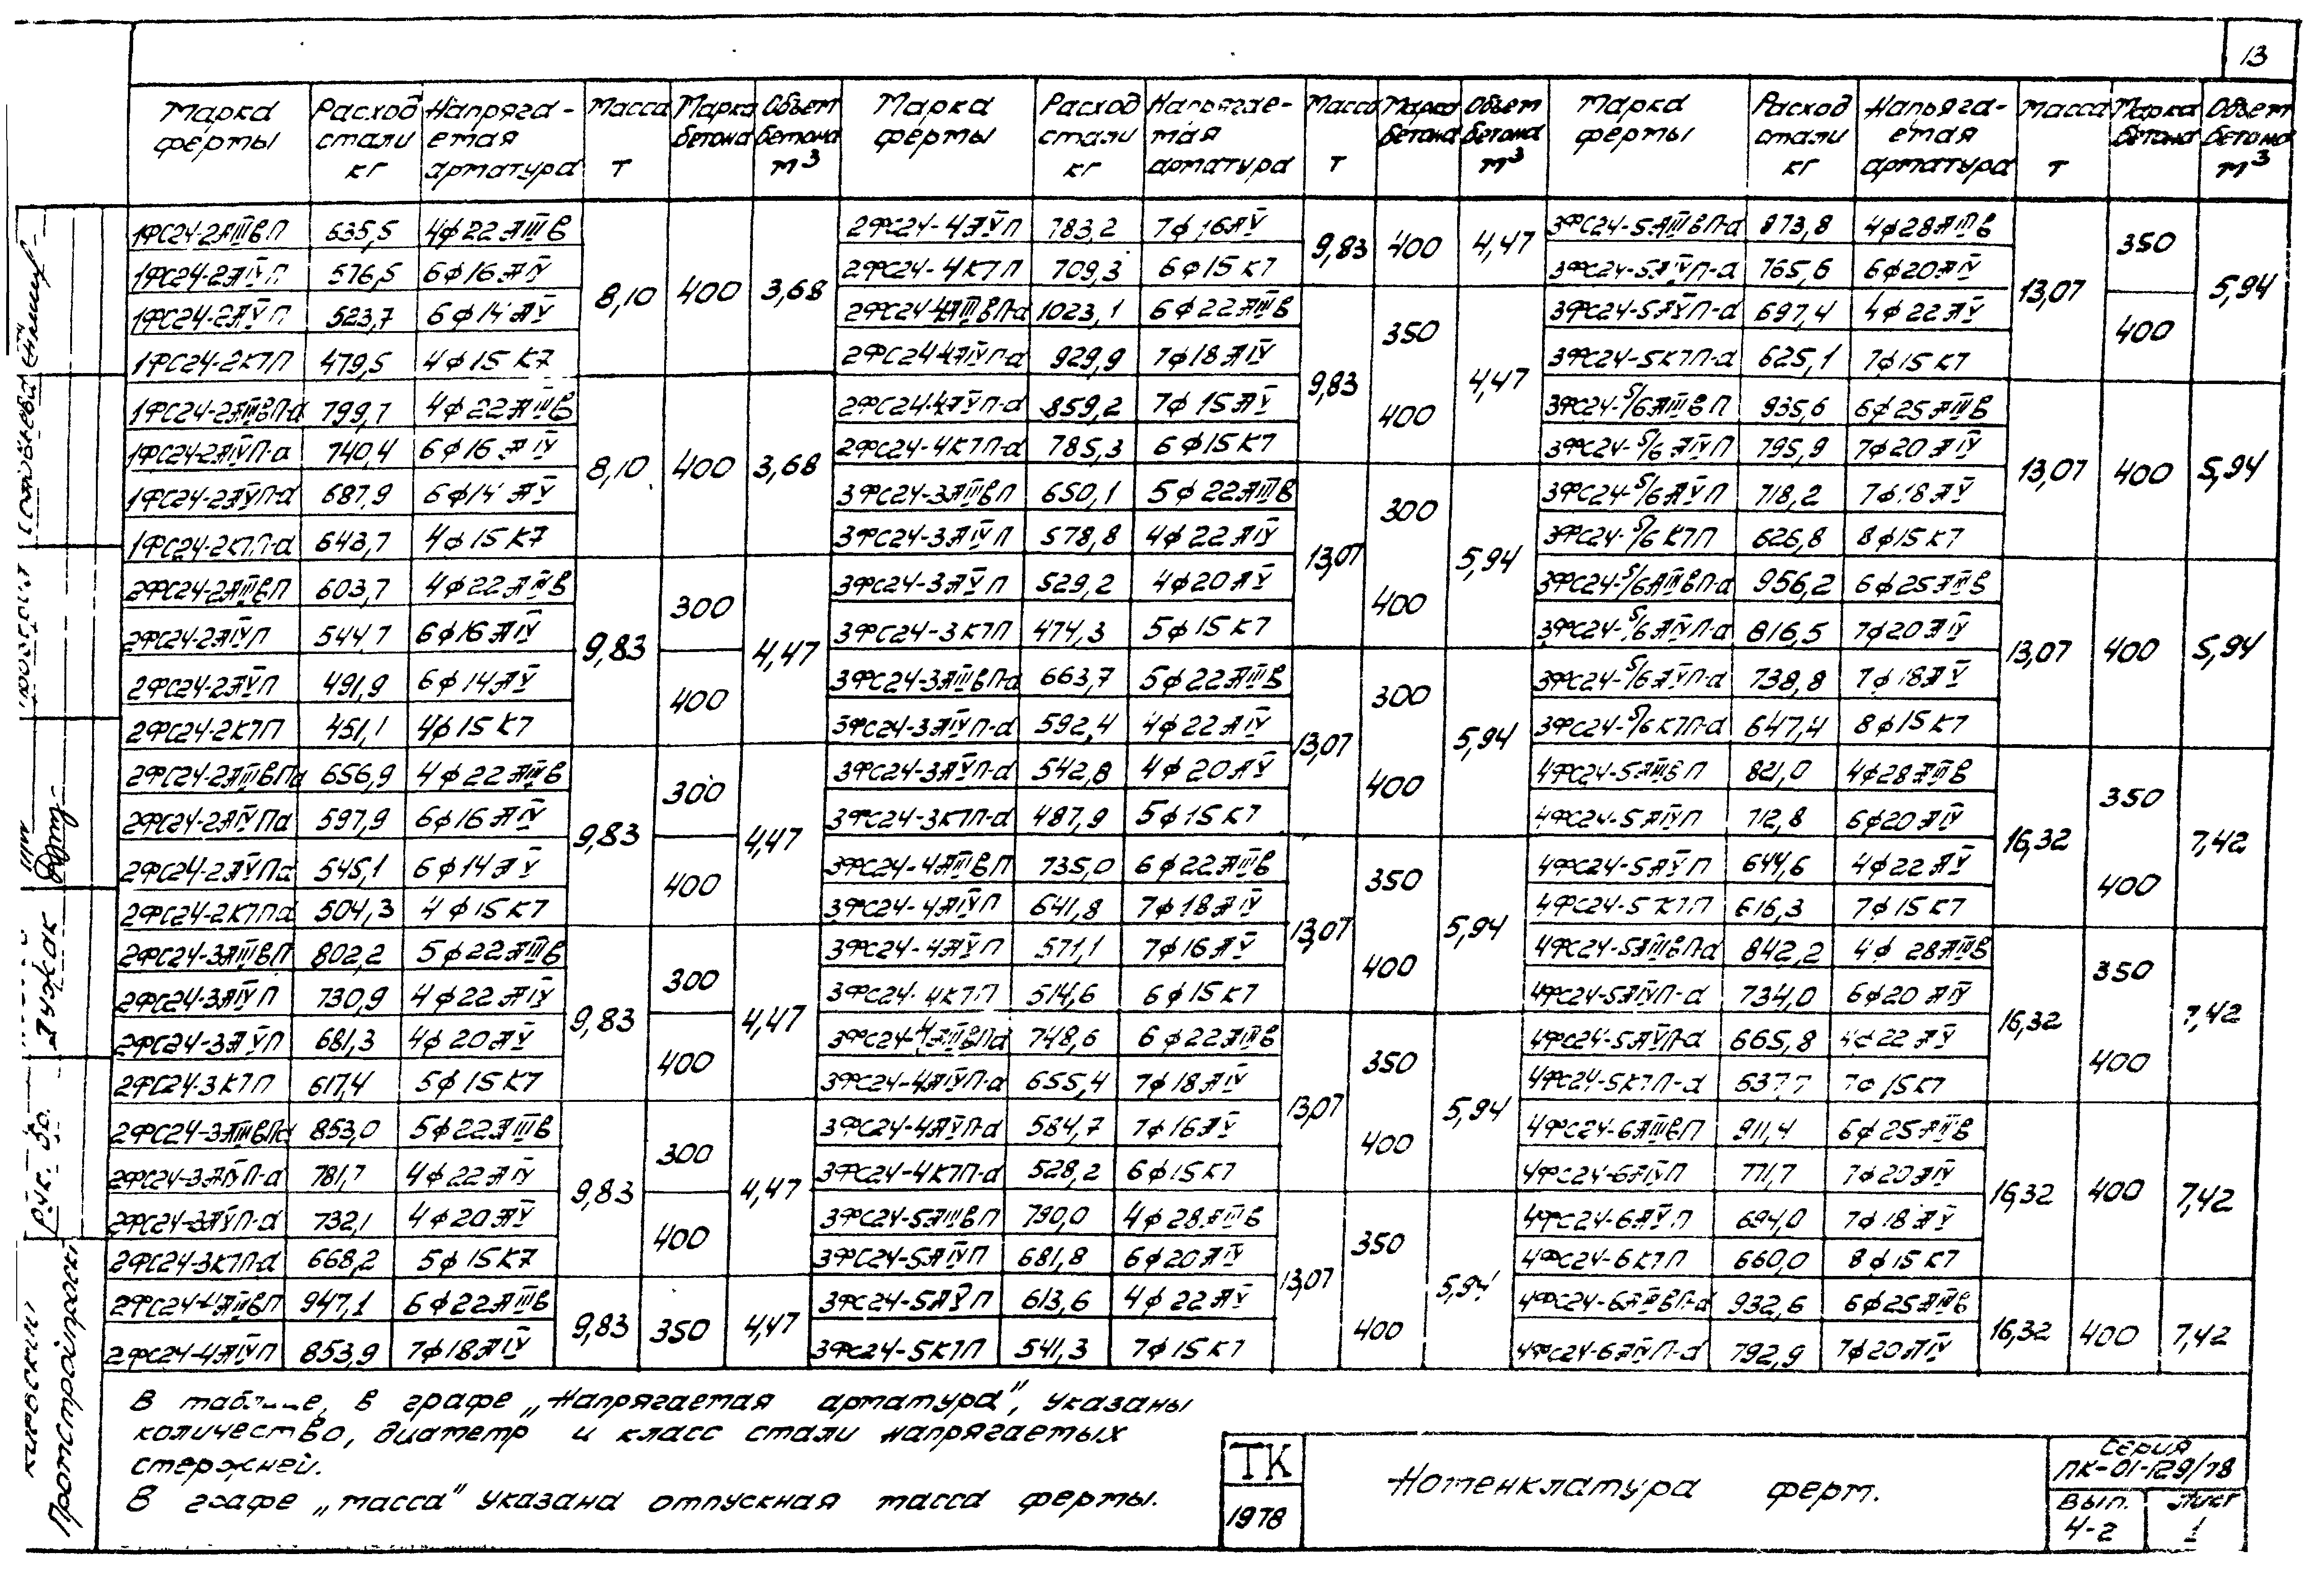 13
Марка фермы | Расход стали кг | Напрягаемая арматура | Масса т | Марка бетона | Объем бетона м³
1ФС24-2АIIIвП | 635,5 | 4ф22АIIIв | 8,10 | 400 | 3,68
1ФС24-2АIVП | 576,5 | 6ф16АIV
1ФС24-2АVП | 523,7 | 6ф14АV
1ФС24-2К7П | 479,5 | 4ф15К7
1ФС24-2АIIIвП-а | 799,7 | 4ф22АIIIв | 8,10 | 400 | 3,68
1ФС24-2АIVП-а | 740,4 | 6ф16АIV
1ФС24-2АVП-а | 687,9 | 6ф14АV
1ФС24-2К7П-а | 643,7 | 4ф15К7
2ФС24-2АIIIвП | 603,7 | 4ф22АIIIв | 9,83 | 300 | 4,47
2ФС24-2АIVП | 544,7 | 6ф16АIV
2ФС24-2АVП | 491,9 | 6ф14АV | 400
2ФС24-2К7П | 451,1 | 4ф15К7
2ФС24-2АIIIвПа | 656,9 | 4ф22АIIIв | 9,83 | 300 | 4,47
2ФС24-2АIVПа | 597,9 | 6ф16АIV
2ФС24-2АVПа | 545,1 | 6ф14АV | 400
2ФС24-2К7Па | 504,3 | 4ф15К7
2ФС24-3АIIIвП | 802,2 | 5ф22АIIIв | 9,83 | 300 | 4,47
2ФС24-3АIVП | 730,9 | 4ф22АIV
2ФС24-3АVП | 681,3 | 4ф20АV | 400
2ФС24-3К7П | 617,4 | 5ф15К7
2ФС24-3АIIIвПа | 853,0 | 5ф22АIIIв | 9,83 | 300 | 4,47
2ФС24-3АIVП-а | 781,7 | 4ф22АIV
2ФС24-3АVП-а | 732,1 | 4ф20АV | 400
2ФС24-3К7П-а | 668,2 | 5ф15К7
2ФС24-4АIIIвП | 947,1 | 6ф22АIIIв | 9,83 | 350 | 4,47
2ФС24-4АIVП | 853,9 | 7ф18АIV
Марка фермы | Расход стали кг | Напрягаемая арматура | Масса т | Марка бетона | Объем бетона м³
2ФС24-4АVП | 783,2 | 7ф16АV | 9,83 | 400 | 4,47
2ФС24-4К7П | 709,3 | 6ф15К7
2ФС24-4АIIIвП-а | 1023,1 | 6ф22АIIIв | 9,83 | 350 | 4,47
2ФС24-4АIVП-а | 929,9 | 7ф18АIV
2ФС24-4АVП-а | 859,2 | 7ф15АV | 400
2ФС24-4К7П-а | 785,3 | 6ф15К7
3ФС24-3АIIIвП | 650,1 | 5ф22АIIIв | 13,07 | 300 | 5,94
3ФС24-3АIVП | 578,8 | 4ф22АIV
3ФС24-3АVП | 529,2 | 4ф20АV | 400
3ФС24-3К7П | 474,3 | 5ф15К7
3ФС24-3АIIIвП-а | 663,7 | 5ф22АIIIв | 13,07 | 300 | 5,94
3ФС24-3АIVП-а | 592,4 | 4ф22АIV
3ФС24-3АVП-а | 542,8 | 4ф20АV | 400
3ФС24-3К7П-а | 487,9 | 5ф15К7
3ФС24-4АIIIвП | 735,0 | 6ф22АIIIв | 13,07 | 350 | 5,94
3ФС24-4АIVП | 641,8 | 7ф18АIV
3ФС24-4АVП | 571,1 | 7ф16АV | 400
3ФС24-4К7П | 514,6 | 6ф15К7
3ФС24-4АIIIвПа | 748,6 | 6ф22АIIIв | 13,07 | 350 | 5,94
3ФС24-4АIVП-а | 655,4 | 7ф18АIV
3ФС24-4АVП-а | 584,7 | 7ф16АV | 400
3ФС24-4К7П-а | 528,2 | 6ф15К7
3ФС24-5АIIIвП | 790,0 | 4ф28АIIIв | 13,07 | 350 | 5,94
3ФС24-5АIVП | 681,8 | 6ф20АIV
3ФС24-5АVП | 613,6 | 4ф22АV | 400
3ФС24-5К7П | 541,3 | 7ф15К7
Марка фермы | Расход стали кг | Напрягаемая арматура | Масса т | Марка бетона | Объем бетона м³
3ФС24-5АIIIвП-а | 873,8 | 4ф28АIIIв | 13,07 | 350 | 5,94
3ФС24-5АIVП-а | 765,6 | 6ф20АIV
3ФС24-5АVП-а | 697,4 | 4ф22АV | 400
3ФС24-5К7П-а | 625,1 | 7ф15К7
3ФС24-5/6АIIIвП | 935,6 | 6ф25АIIIв | 13,07 | 400 | 5,94
3ФС24-5/6АIVП | 795,9 | 7ф20АIV
3ФС24-5/6АVП | 718,2 | 7ф18АV
3ФС24-5/6К7П | 626,8 | 8ф15К7
3ФС24-5/6АIIIвП-а | 956,2 | 6ф25АIIIв | 13,07 | 400 | 5,94
3ФС24-5/6АIVП-а | 816,5 | 7ф20АIV
3ФС24-5/6АVП-а | 738,8 | 7ф18АV
3ФС24-5/6К7П-а | 647,4 | 8ф15К7
4ФС24-5АIIIвП | 821,0 | 4ф28АIIIв | 16,32 | 350 | 7,42
4ФС24-5АIVП | 712,8 | 6ф20АIV
4ФС24-5АVП | 644,6 | 4ф22АV | 400
4ФС24-5К7П | 616,3 | 7ф15К7
4ФС24-5АIIIвП-а | 842,2 | 4ф28АIIIв | 16,32 | 350 | 7,42
4ФС24-5АIVП-а | 734,0 | 6ф20АIV
4ФС24-5АVП-а | 665,8 | 4ф22АV | 400
4ФС24-5К7П-а | 7ф15К7
4ФС24-6АIIIвП | 911,4 | 6ф25АIIIв | 16,32 | 400 | 7,42
4ФС24-6АIVП | 771,7 | 7ф20АIV
4ФС24-6АVП | 694,0 | 7ф18АV
4ФС24-6К7П | 660,0 | 8ф15К7
4ФС24-6АIIIвП-а | 932,6 | 6ф25АIIIв | 16,32 | 400 | 7,42
4ФС24-6АIVП-а | 792,9 | 7ф20АIV
В таблице, в графе „Напрягаемая арматура", указаны
количество, диаметр и класс стали напрягаемых
стержней.
В графе „масса" указана отпускная масса фермы.
ТК
1978
Номенклатура ферм.
Серия
ПК-01-129/78
Вып.
4-2
Лист
1
Рук. бр.
Лужак
Промстройпроект